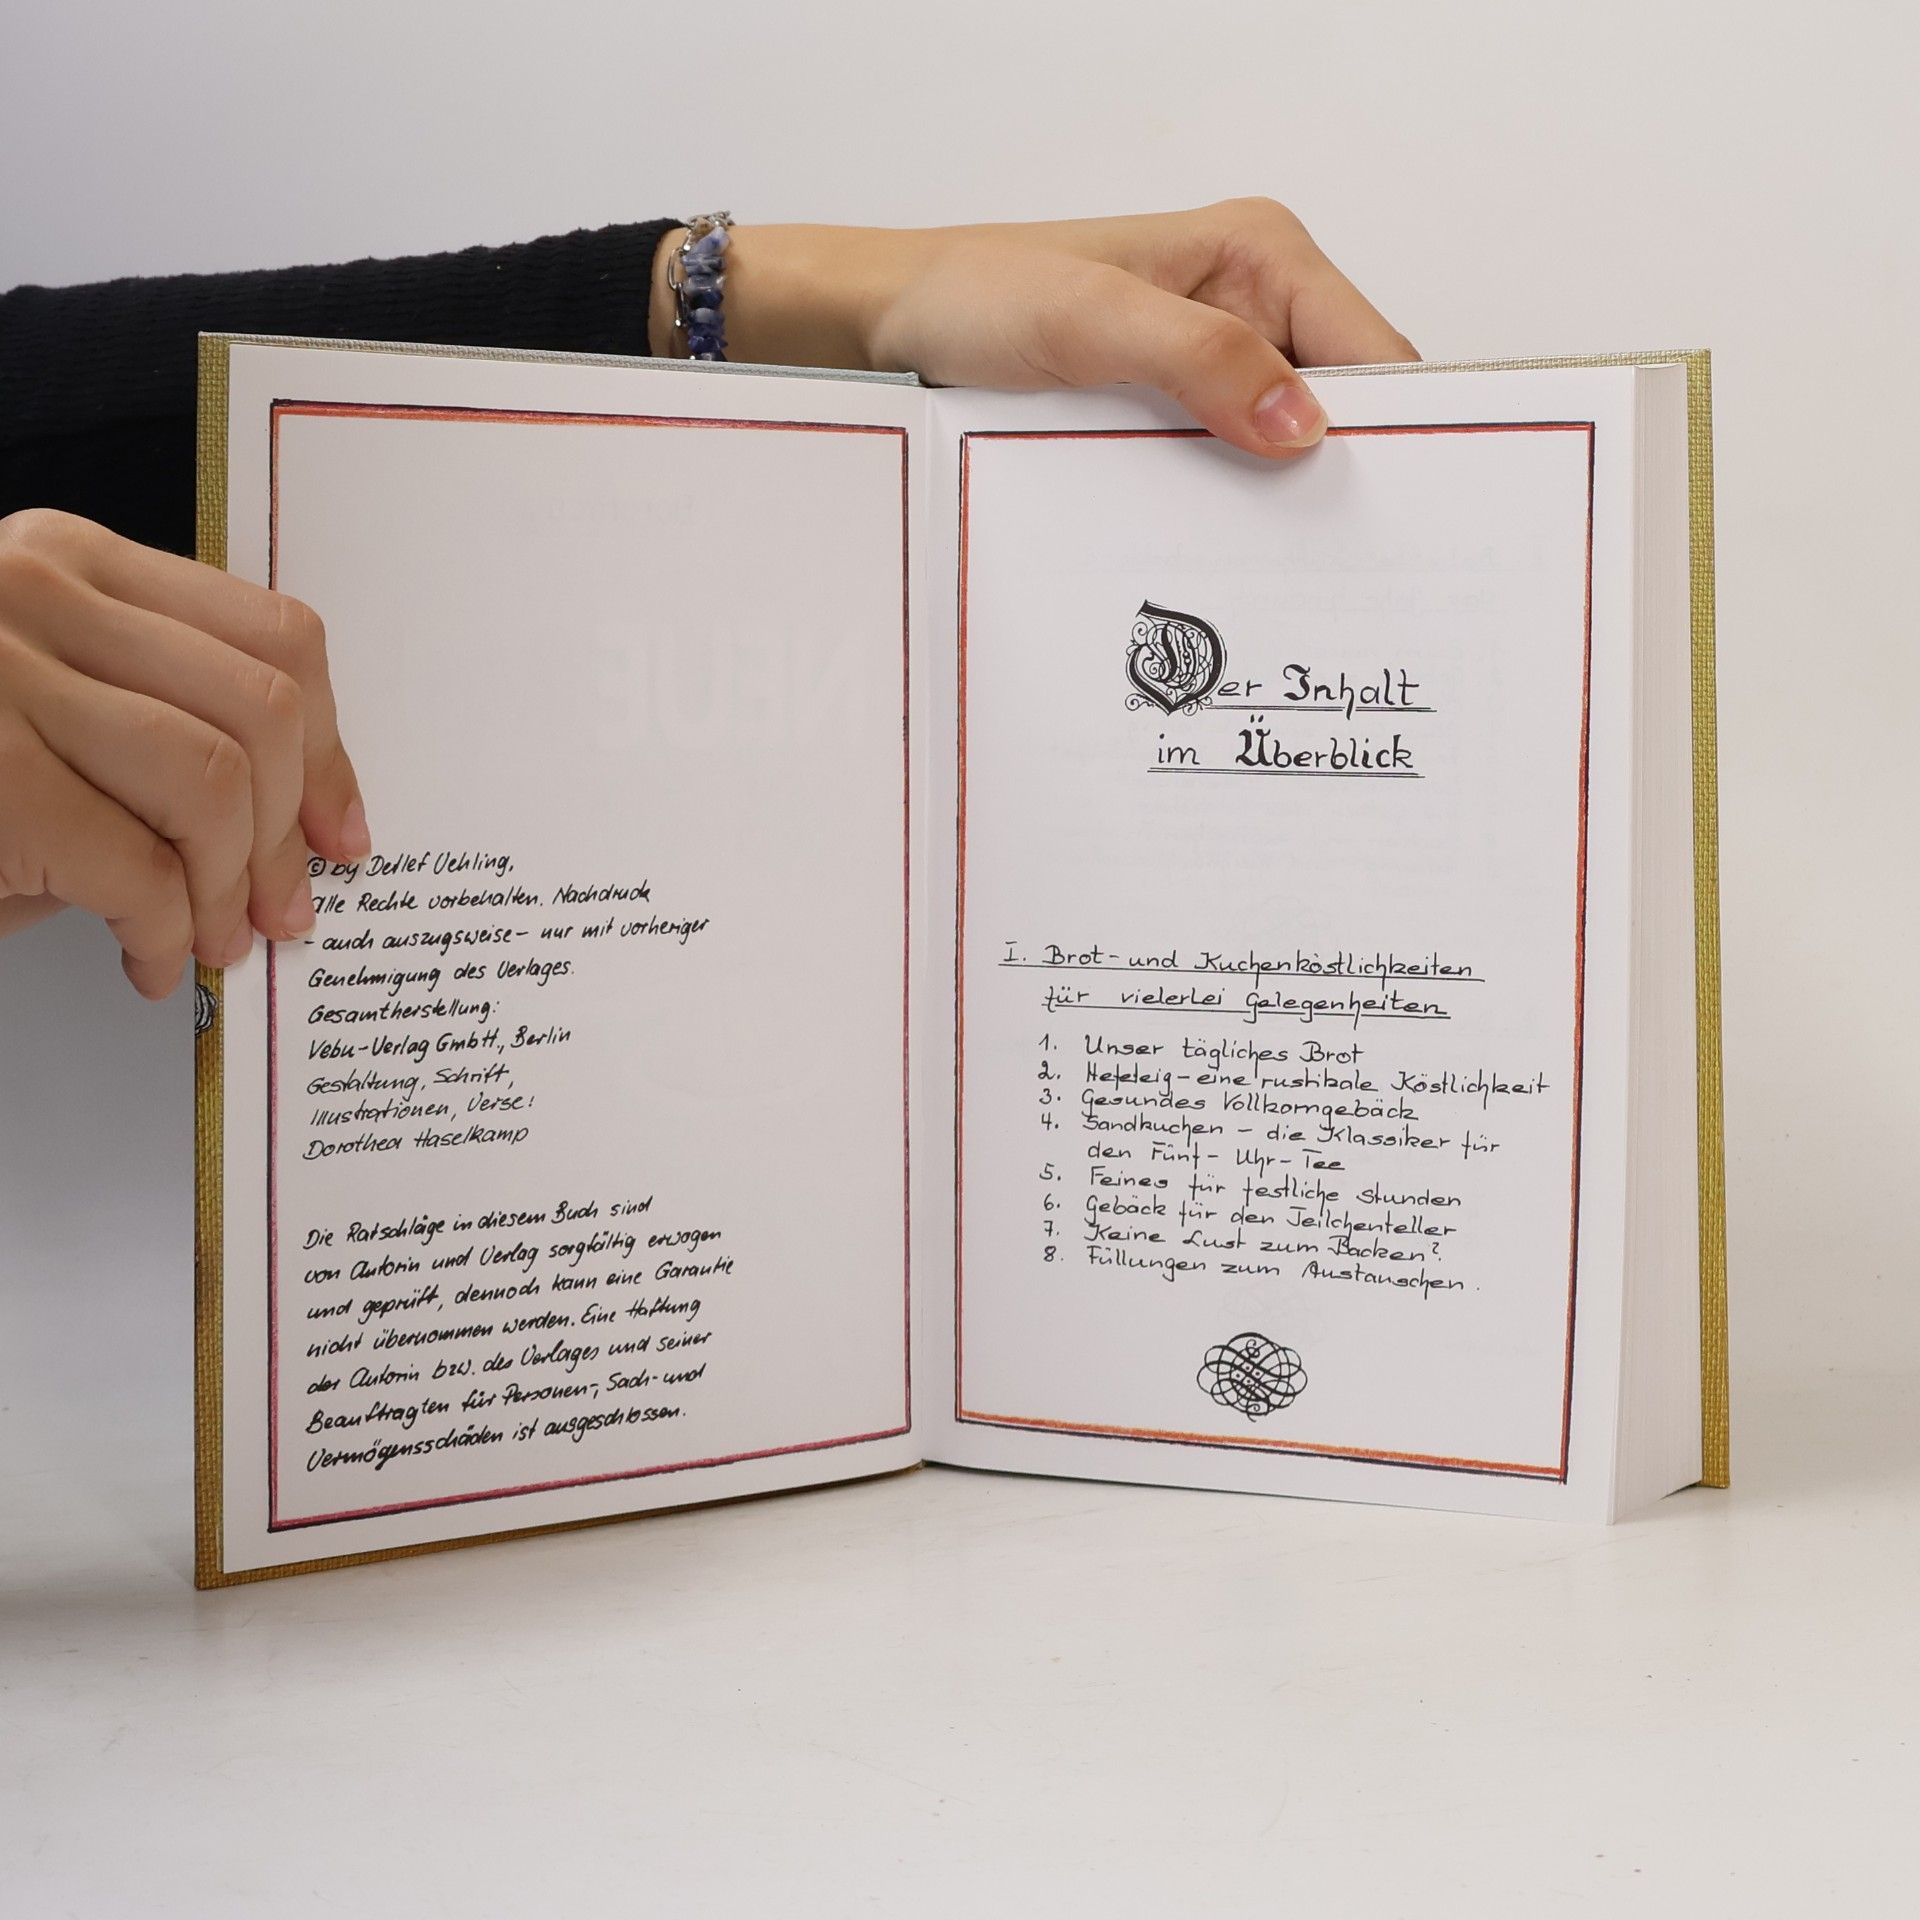 © by Detlef Uehling,
alle Rechte vorbehalten. Nachdruck
- auch auszugsweise - nur mit vorheriger
Genehmigung des Verlages.
Gesamtherstellung:
Vebu-Verlag GmbH., Berlin
Gestaltung, Schrift,
Illustrationen, Verse:
Dorothea Haselkamp
Die Ratschläge in diesem Buch sind
von Autorin und Verlag sorgfältig erwogen
und geprüft, dennoch kann eine Garantie
nicht übernommen werden. Eine Haftung
der Autorin bzw. des Verlages und seiner
Beauftragten für Personen-, Sach- und
Vermögensschäden ist ausgeschlossen.
Der Inhalt
im Überblick
I. Brot- und Kuchenköstlichkeiten
für vielerlei Gelegenheiten
1. Unser tägliches Brot
2. Hefeteig - eine rustikale Köstlichkeit
3. Gesundes Vollkorngebäck
4. Sandkuchen - die Klassiker für
den Fünf-Uhr-Tee
5. Feines für festliche Stunden
6. Gebäck für den Teilchenteller
7. Keine Lust zum Backen?
8. Füllungen zum Austauschen.